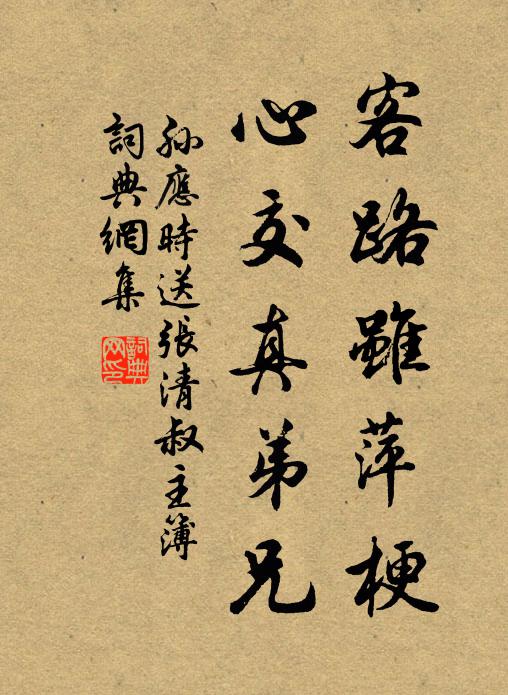 客路雖萍梗
心交真弟兄
孫應時送張清叔主簿
詞典網集
詞典网印